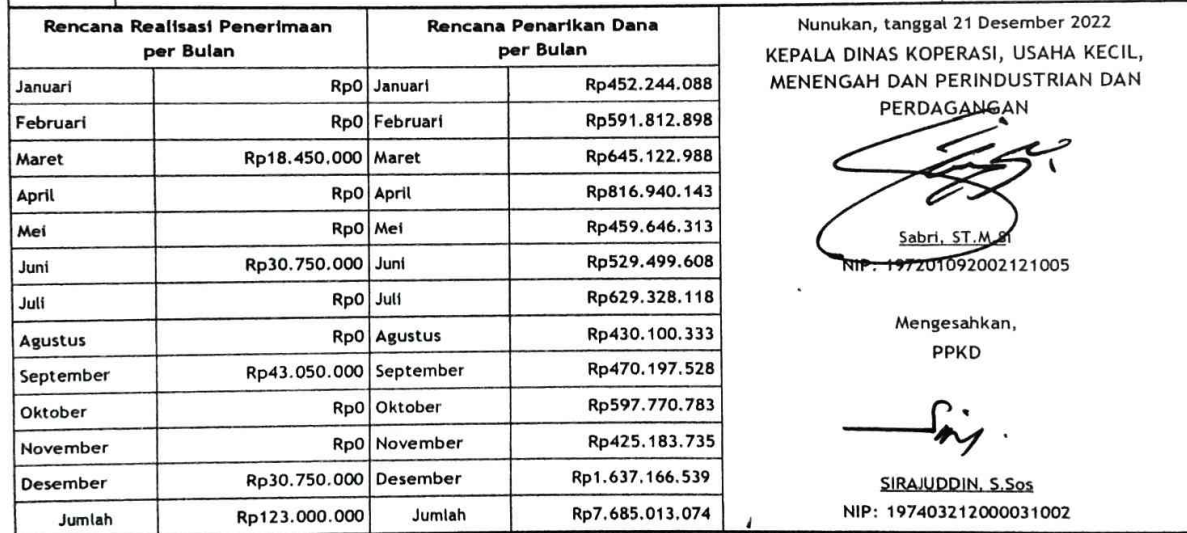 Rencana Realisasi Penerimaan per Bulan | Rencana Penarikan Dana per Bulan
Januari Rp0 Januari Rp452.244.088
Februari Rp0 Februari Rp591.812.898
Maret Rp18.450.000 Maret Rp645.122.988
April Rp0 April Rp816.940.143
Mei Rp0 Mei Rp459.646.313
Juni Rp30.750.000 Juni Rp529.499.608
Juli Rp0 Juli Rp629.328.118
Agustus Rp0 Agustus Rp430.100.333
September Rp43.050.000 September Rp470.197.528
Oktober Rp0 Oktober Rp597.770.783
November Rp0 November Rp425.183.735
Desember Rp30.750.000 Desember Rp1.637.166.539
Jumlah Rp123.000.000 Jumlah Rp7.685.013.074
Nunukan, tanggal 21 Desember 2022
KEPALA DINAS KOPERASI, USAHA KECIL,
MENENGAH DAN PERINDUSTRIAN DAN
PERDAGANGAN
Sabri, ST.M.Si
NIP: 197201092002121005
Mengesahkan,
PPKD
SIRAJUDDIN, S.Sos
NIP: 197403212000031002